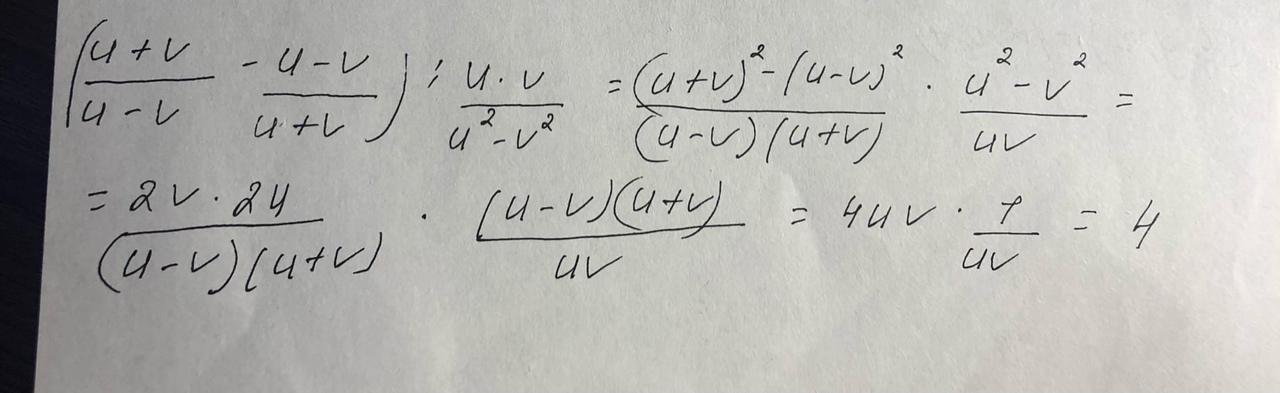 ((u+v)/(u-v) - (u-v)/(u+v)) : (u·v)/(u²-v²) = ((u+v)²-(u-v)²)/((u-v)(u+v)) · (u²-v²)/(uv) =
= (2v·2u)/((u-v)(u+v)) · ((u-v)(u+v))/(uv) = 4uv · 1/(uv) = 4